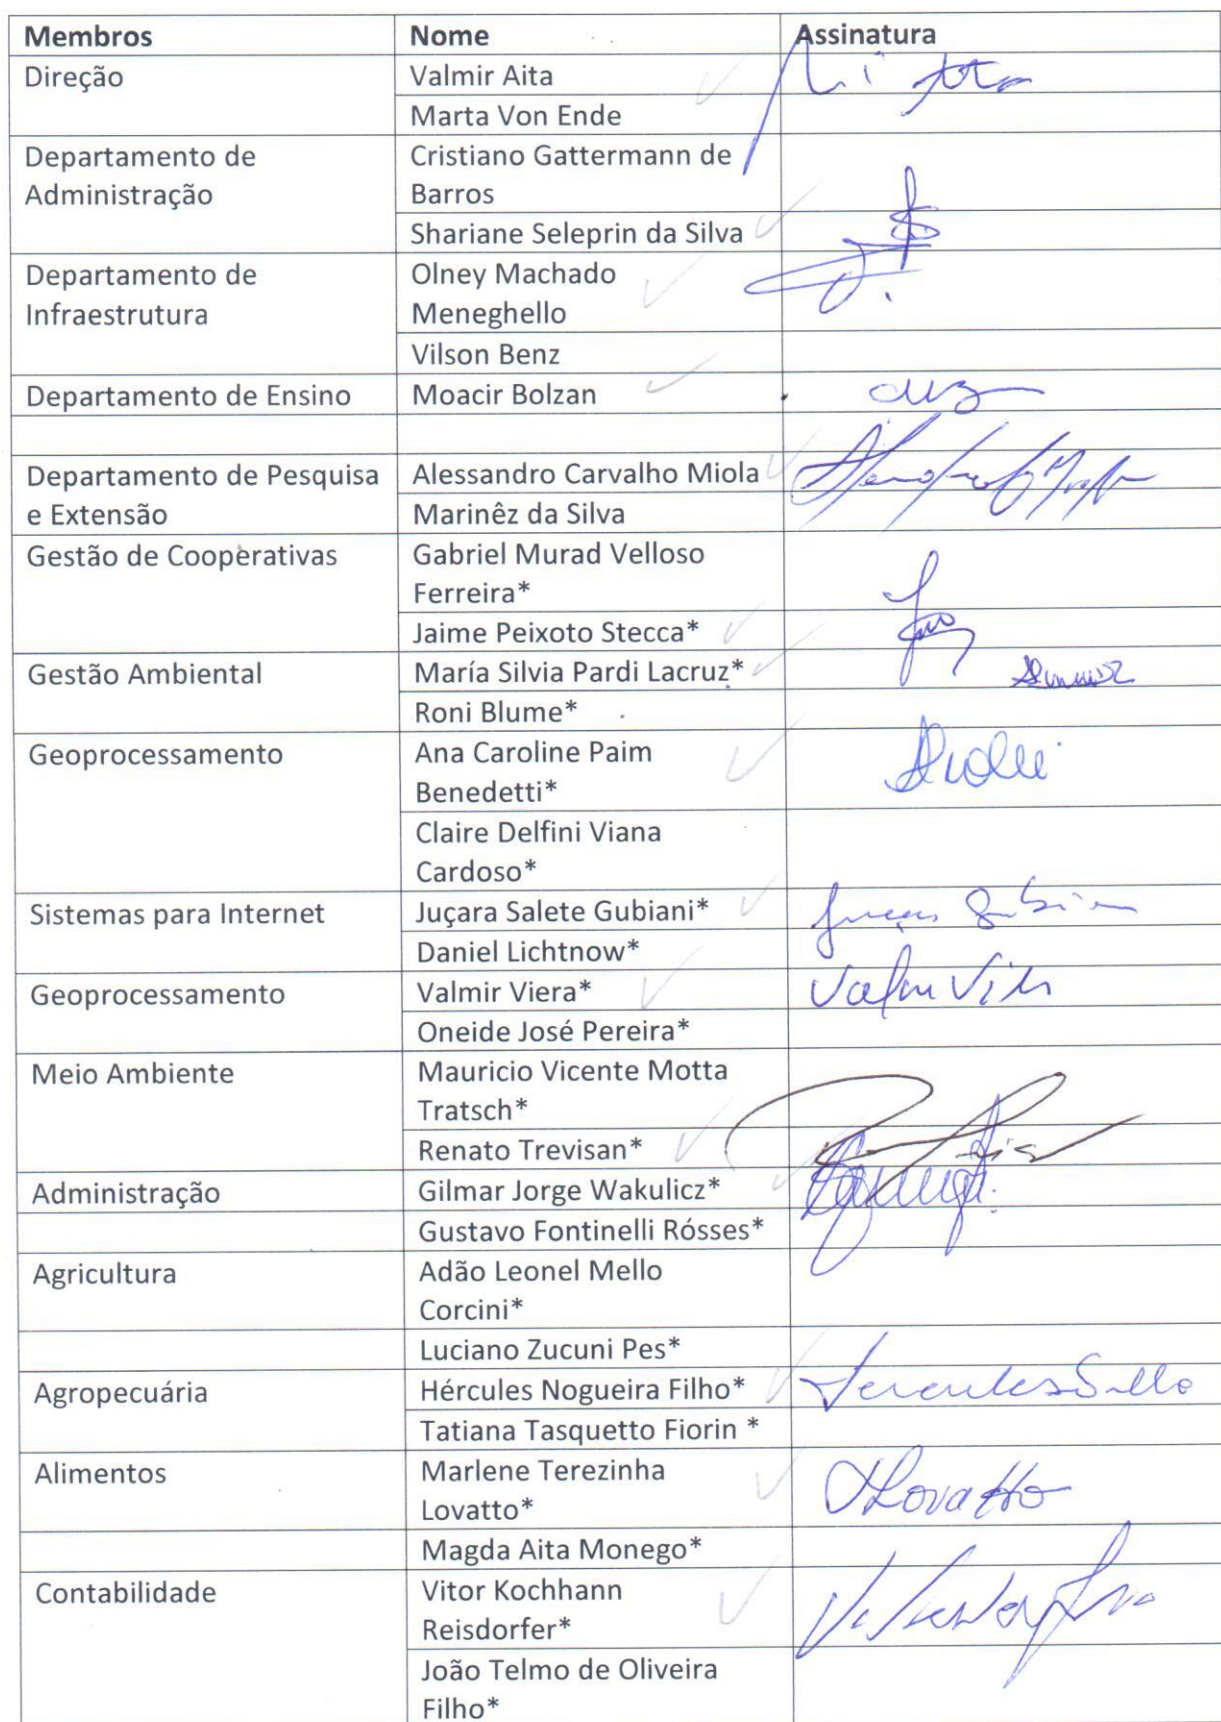 Membros Nome Assinatura
Direção Valmir Aita
Marta Von Ende
Departamento de Cristiano Gattermann de
Administração Barros
Shariane Seleprin da Silva
Departamento de Olney Machado
Infraestrutura Meneghello
Vilson Benz
Departamento de Ensino Moacir Bolzan
Departamento de Pesquisa Alessandro Carvalho Miola
e Extensão Marinêz da Silva
Gestão de Cooperativas Gabriel Murad Velloso
Ferreira*
Jaime Peixoto Stecca*
Gestão Ambiental María Silvia Pardi Lacruz*
Roni Blume*
Geoprocessamento Ana Caroline Paim
Benedetti*
Claire Delfini Viana
Cardoso*
Sistemas para Internet Juçara Salete Gubiani*
Daniel Lichtnow*
Geoprocessamento Valmir Viera*
Oneide José Pereira*
Meio Ambiente Mauricio Vicente Motta
Tratsch*
Renato Trevisan*
Administração Gilmar Jorge Wakulicz*
Gustavo Fontinelli Rósses*
Agricultura Adão Leonel Mello
Corcini*
Luciano Zucuni Pes*
Agropecuária Hércules Nogueira Filho*
Tatiana Tasquetto Fiorin *
Alimentos Marlene Terezinha
Lovatto* Lovatto
Magda Aita Monego*
Contabilidade Vitor Kochhann
Reisdorfer*
João Telmo de Oliveira
Filho*